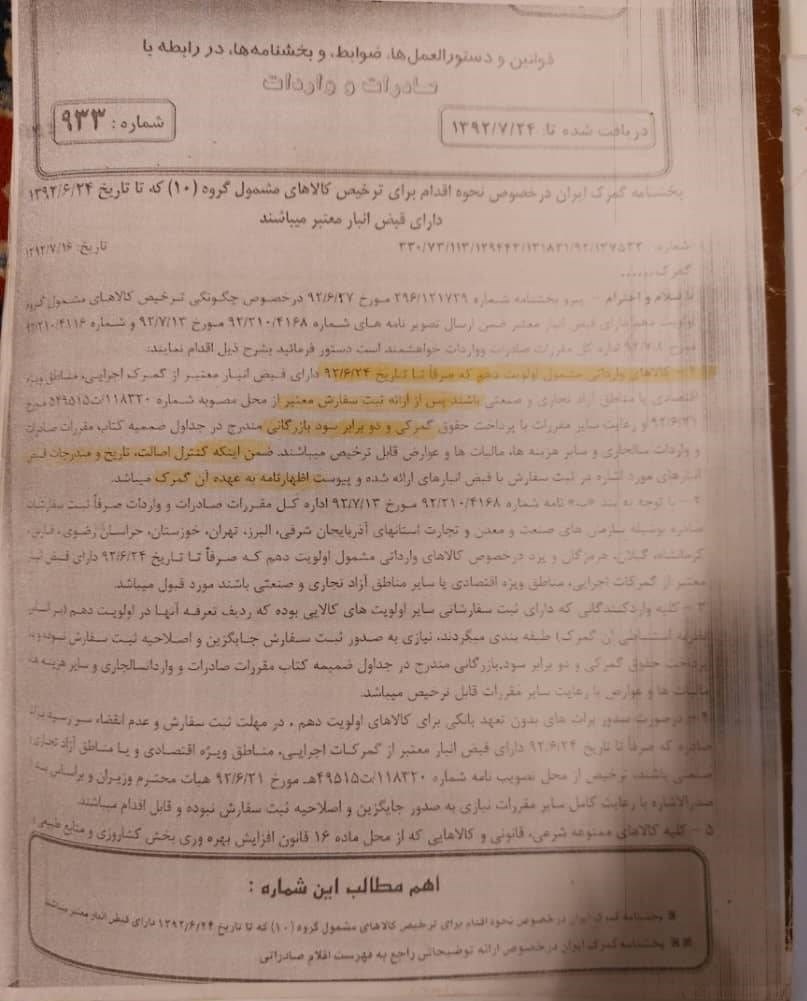 قوانین و دستورالعمل‌ها، ضوابط، و بخشنامه‌ها، در رابطه با
صادرات و واردات
شماره: ۹۳۳
دریافت شده تا: ۱۳۹۲/۷/۲۴
بخشنامه گمرک ایران درخصوص نحوه اقدام برای ترخیص کالاهای مشمول گروه (۱۰) که تا تاریخ ۱۳۹۲/۶/۲۴
دارای قبض انبار معتبر میباشند
تاریخ: ۱۳۹۲/۷/۱۶
گمرک.......
با سلام و احترام – پیرو بخشنامه شماره ۲۹۶/۱۲۱۷۲۹ مورخ ۹۲/۶/۲۷ درخصوص چگونگی ترخیص کالاهای مشمول گروه
اولویت دهم دارای قبض انبار معتبر ضمن ارسال تصویر نامه های شماره ۹۲/۲۱۰/۴۱۶۸ مورخ ۹۲/۷/۱۳ و شماره ۹۲/۲۱۰/۴۱۱۶
مورخ ۹۲/۷/۸ اداره کل مقررات صادرات وواردات خواهشمند است دستور فرمائید بشرح ذیل اقدام نمایند:
۱- کالاهای وارداتی مشمول اولویت دهم که صرفاً تا تاریخ ۹۲/۶/۲۴ دارای قبض انبار معتبر از گمرک اجرایی، مناطق ویژه
اقتصادی یا مناطق آزاد تجاری و صنعتی باشند پس از ارائه ثبت سفارش معتبر از محل مصوبه شماره ۱۱۸۳۲۰/ت۴۹۵۱۵ مورخ
۹۲/۶/۳۱ و رعایت سایر مقررات با پرداخت حقوق گمرکی و دو برابر سود بازرگانی مندرج در جداول ضمیمه کتاب مقررات صادرات
و واردات سالجاری و سایر هزینه ها، مالیات ها و عوارض قابل ترخیص میباشند. ضمن اینکه کنترل اصالت، تاریخ و مندرجات قبض
انبارهای مورد اشاره در ثبت سفارش با قبض انبارهای ارائه شده و پیوست اظهارنامه به عهده آن گمرک میباشد.
۲- با توجه به بند «ب» نامه شماره ۹۲/۲۱۰/۴۱۶۸ مورخ ۹۲/۷/۱۳ اداره کل مقررات صادرات و واردات صرفاً ثبت سفارشات
صادره بوسیله سازمان های صنعت و معدن و تجارت استانهای آذربایجان شرقی، البرز، تهران، خوزستان، خراسان رضوی، فارس،
کرمانشاه، گیلان، هرمزگان و یزد درخصوص کالاهای وارداتی مشمول اولویت دهم که صرفاً تا تاریخ ۹۲/۶/۲۴ دارای قبض انبار
معتبر از گمرکات اجرایی، مناطق ویژه اقتصادی یا سایر مناطق آزاد تجاری و صنعتی باشند مورد قبول میباشد.
۳- کلیه واردکنندگانی که دارای ثبت سفارشاتی سایر اولویت های کالایی بوده که ردیف تعرفه آنها در اولویت دهم (بر اساس
آن گمرک) طبقه بندی میگردند، نیازی به صدور ثبت سفارش جایگزین و اصلاحیه ثبت سفارش نبوده و با
پرداخت حقوق گمرکی و دو برابر سود بازرگانی مندرج در جداول ضمیمه کتاب مقررات صادرات و وارداتسالجاری و سایر هزینه ها
مالیات ها و عوارض با رعایت سایر مقررات قابل ترخیص میباشد.
۴- درصورت صدور برات های بدون تعهد بانکی برای کالاهای اولویت دهم، در مهلت ثبت سفارش و عدم انقضاء سررسید برات
صادره که صرفاً تا تاریخ ۹۲/۶/۲۴ دارای قبض انبار معتبر از گمرکات اجرایی، مناطق ویژه اقتصادی و یا مناطق آزاد تجاری
صنعتی باشند، ترخیص از محل تصویب نامه شماره ۱۱۸۳۲۰/ت۴۹۵۱۵هـ مورخ ۹۲/۶/۳۱ هیات محترم وزیران و براساس بند
صدرالاشاره با رعایت کامل سایر مقررات نیازی به صدور جایگزین و اصلاحیه ثبت سفارش نبوده و قابل اقدام میباشند.
۵- کلیه کالاهای ممنوعه شرعی، قانونی و کالاهایی که از محل ماده ۱۶ قانون افزایش بهره وری بخش کشاورزی و منابع طبیعی
اهم مطالب این شماره :
بخشنامه گمرک ایران درخصوص نحوه اقدام برای ترخیص کالاهای مشمول گروه (۱۰) که تا تاریخ ۱۳۹۲/۶/۲۴ دارای قبض انبار معتبر میباشند
بخشنامه گمرک ایران درخصوص ارائه توضیحاتی راجع به فهرست اقلام صادراتی